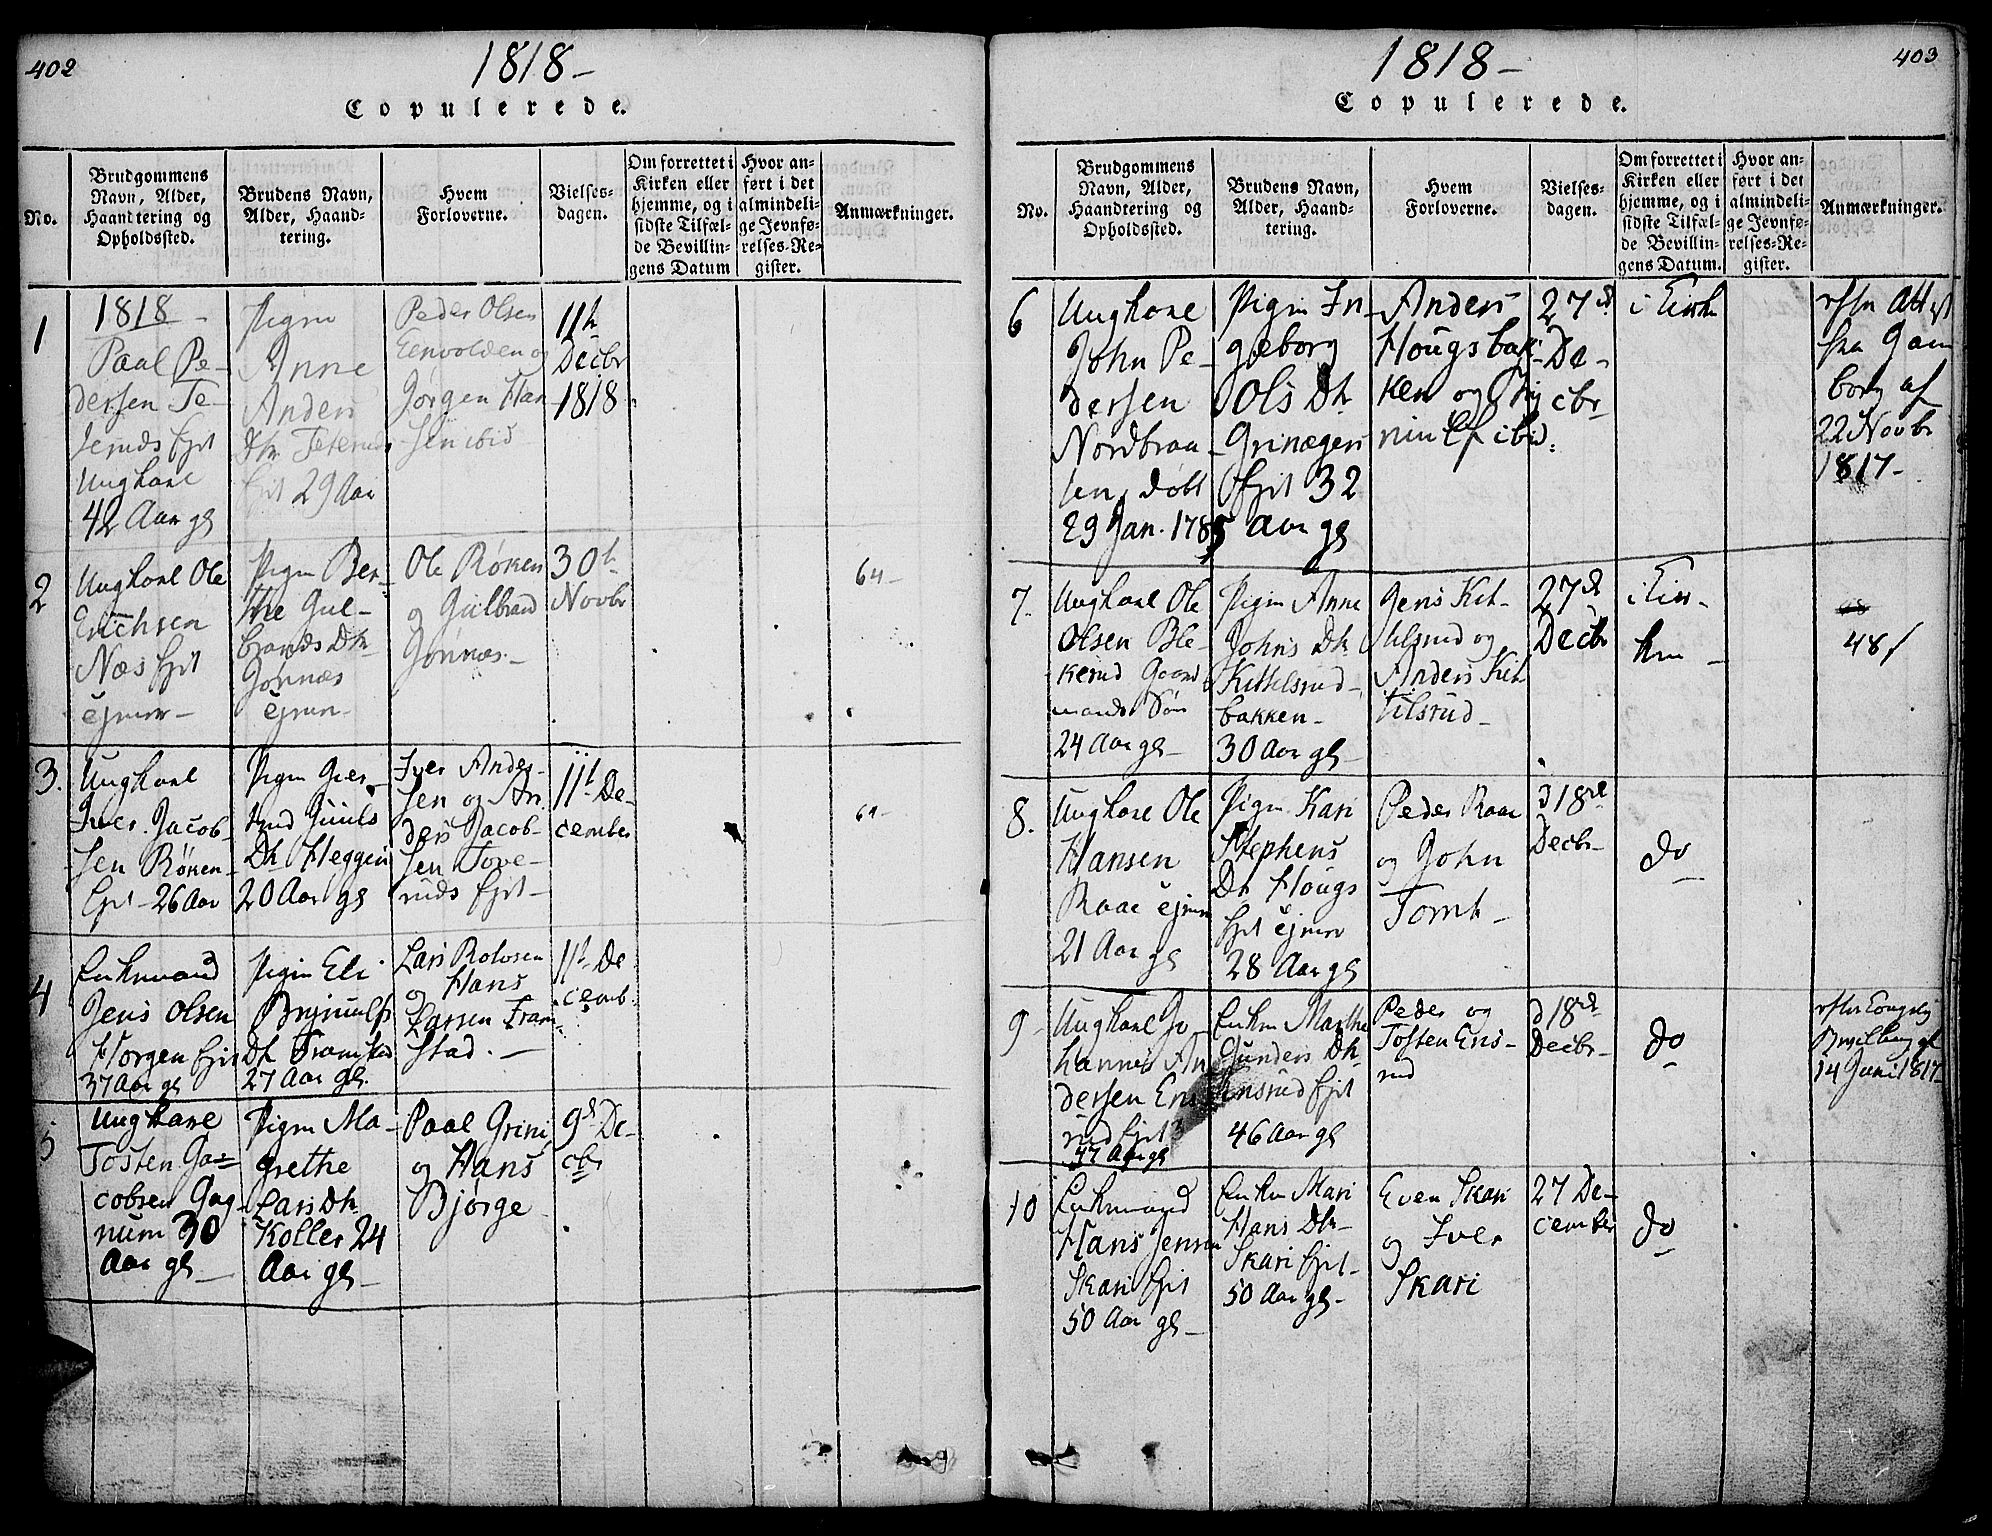 402
1818 –
Copulerede.
No.
Brudgommens
Navn, Alder,
Haandtering og
Opholdssted.
Brudens Navn,
Alder, Haand-
tering.
Hvem
Forloverne.
Vielses-
dagen.
Om forrettet i
Kirken eller
hjemme, og i
sidste Tilfæl-
de Bevillin-
gens Datum
Hvor an-
ført i det
almindeli-
ge Jevnfø-
relses-Re-
gister.
Anmærkninger.
1
1818 –
Paal Pe-
dersen Te-
Ejet
Ungkarl
42 Aar gl
Pigen
Anne
Anders
Dtr
Ejet 29 Aar
Peder Olsen
og
Jørgen Han
sen ibid
11te
Decbr
1818
2
Ungkarl Ole
Erichsen
Næs Ejet
Pigen Ber-
the Gul-
brands Dtr
Gönnæs
Ole Röken
og Gulbrand
Gönnæs –
30te
Novbr
64 –
3.
Ungkarl
Iver Jacob-
sen Röken
Ejet – 26 Aar
Pigen Gier-
trud Guuls
Dtr Heggen
20 Aar gl
Iver Anders-
sen og An
ders Jacob-
sen Tove-
ruds Ejet –
11te De-
cember
4
Enkemand
Jens Olsen
Horgen Ejet
37 Aar gl
Pigen Eli
Brynulfs
Dtr Framstad
27 Aar gl.
Lars Rolvsen
og Hans
Larsen Fram-
stad. –
11te De
cemb.
5
Ungkarl
Tosten Ja-
cobsen Gag-
num 30
Aar gl –
Pigen Ma-
grethe
Lars Dtr
Koller 24
Aar gl –
Paal Grini
og Hans
Bjørge
9de De-
cbr
403
1818 –
Copulerede.
No.
Brudgommens
Navn, Alder,
Haandtering og
Opholdssted.
Brudens Navn,
Alder, Haand-
tering.
Hvem
Forloverne.
Vielses-
dagen.
Om forrettet i
Kirken eller
hjemme, og i
sidste Tilfæl-
de Bevillin-
gens Datum.
Hvor an-
ført i det
almindeli-
ge Jevnfø-
relses-Re-
gister.
Anmærkninger.
6
Ungkarl
John Pe-
dersen
Nordbraa-
ten, döbt
29 Jan. 1785
Pigen In-
geborg
Ols Dtr
Grinægers
Ejet 32
Aar gl
Anders
Hougsbak-
ken og
ibid:
27de
De-
cbr
i Kirken
efter Attest
fra
af
22 Novbr
1817 –
7.
Ungkarl Ole
Olsen Ble-
kerud Gaard
mands Sön
24 Aar gl –
Pigen Anne
Johns Dtr
Kittelsrud-
bakken –
30 Aar gl –
Jens Kit-
tilsrud og
Anders Kit
tilsrud –
27de
Decbr
i Kir-
ken –
48/
8.
Ungkarl Ole
Hansen
Raae
21 Aar gl
Pigen Kari
Stephens
Dtr Hougs
Ejet
28 Aar gl
Peder Raae
og John
Tomt –
d 18de
Decbr –
do
9 –
Ungkarl Jo-
hannes An
dersen Ens
rud Ejet
37 Aar gl
Enken Marthe
Gunders Dtr
Ensrud Ejet
46 Aar gl
Peder og
Tosten Ens-
rud
d 18de
Decbr –
do
efter Kongelig
14 Juni 1817 –
10
Enkemand
Hans Jensen
Skari Ejet
50 Aar gl –
Enken Mari
Hans Dtr –
Skari Ejet –
50 Aar gl –
Even Skari
og Iver
Skari
27 De-
cember
do